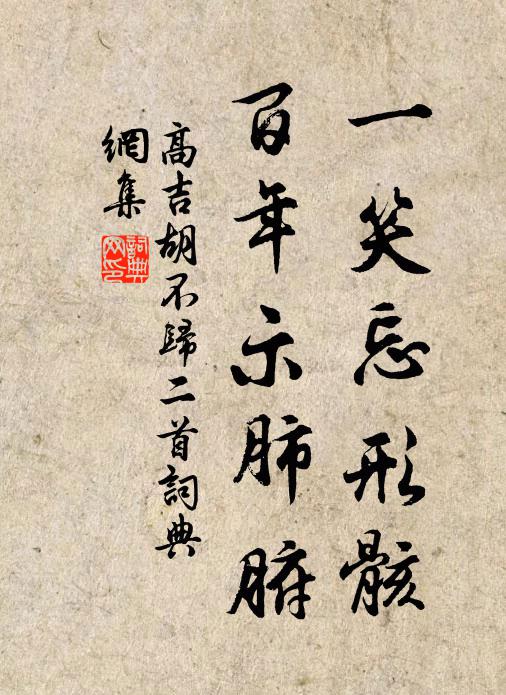 一笑忘形骸
百年示肺腑
高吉胡不歸二首詞典
網集
詞典网印